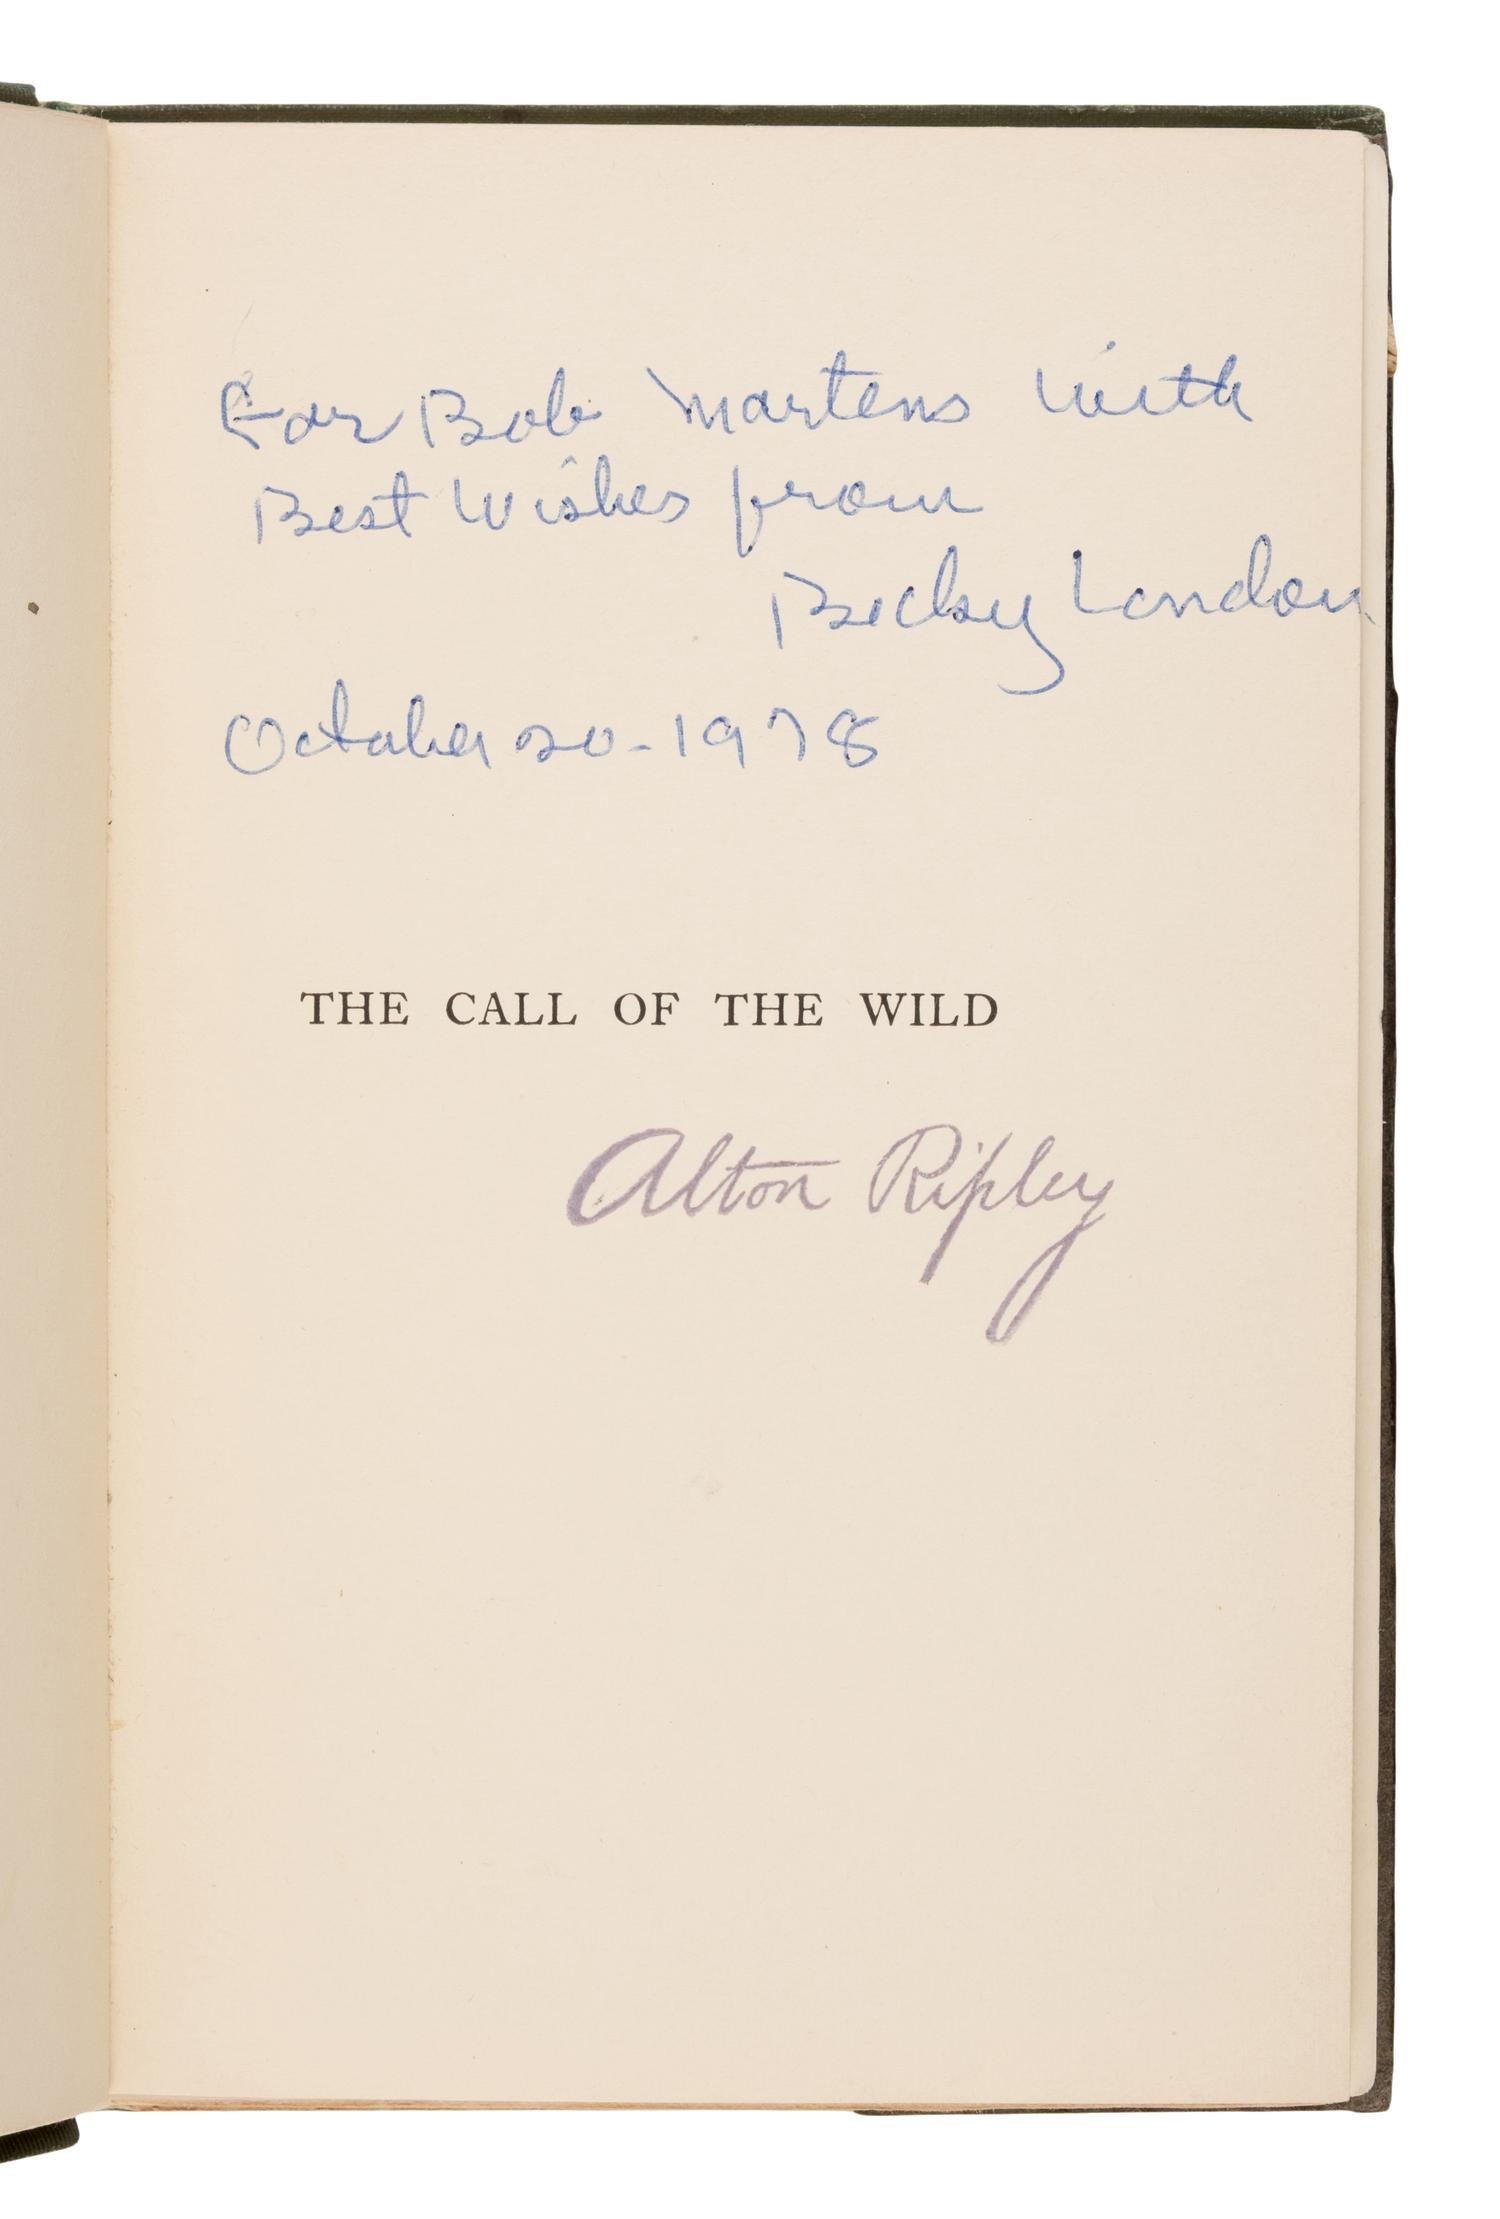 For Bob Martens with
Best Wishes from
Becky London
October 20-1978
THE CALL OF THE WILD
Alton Ripley